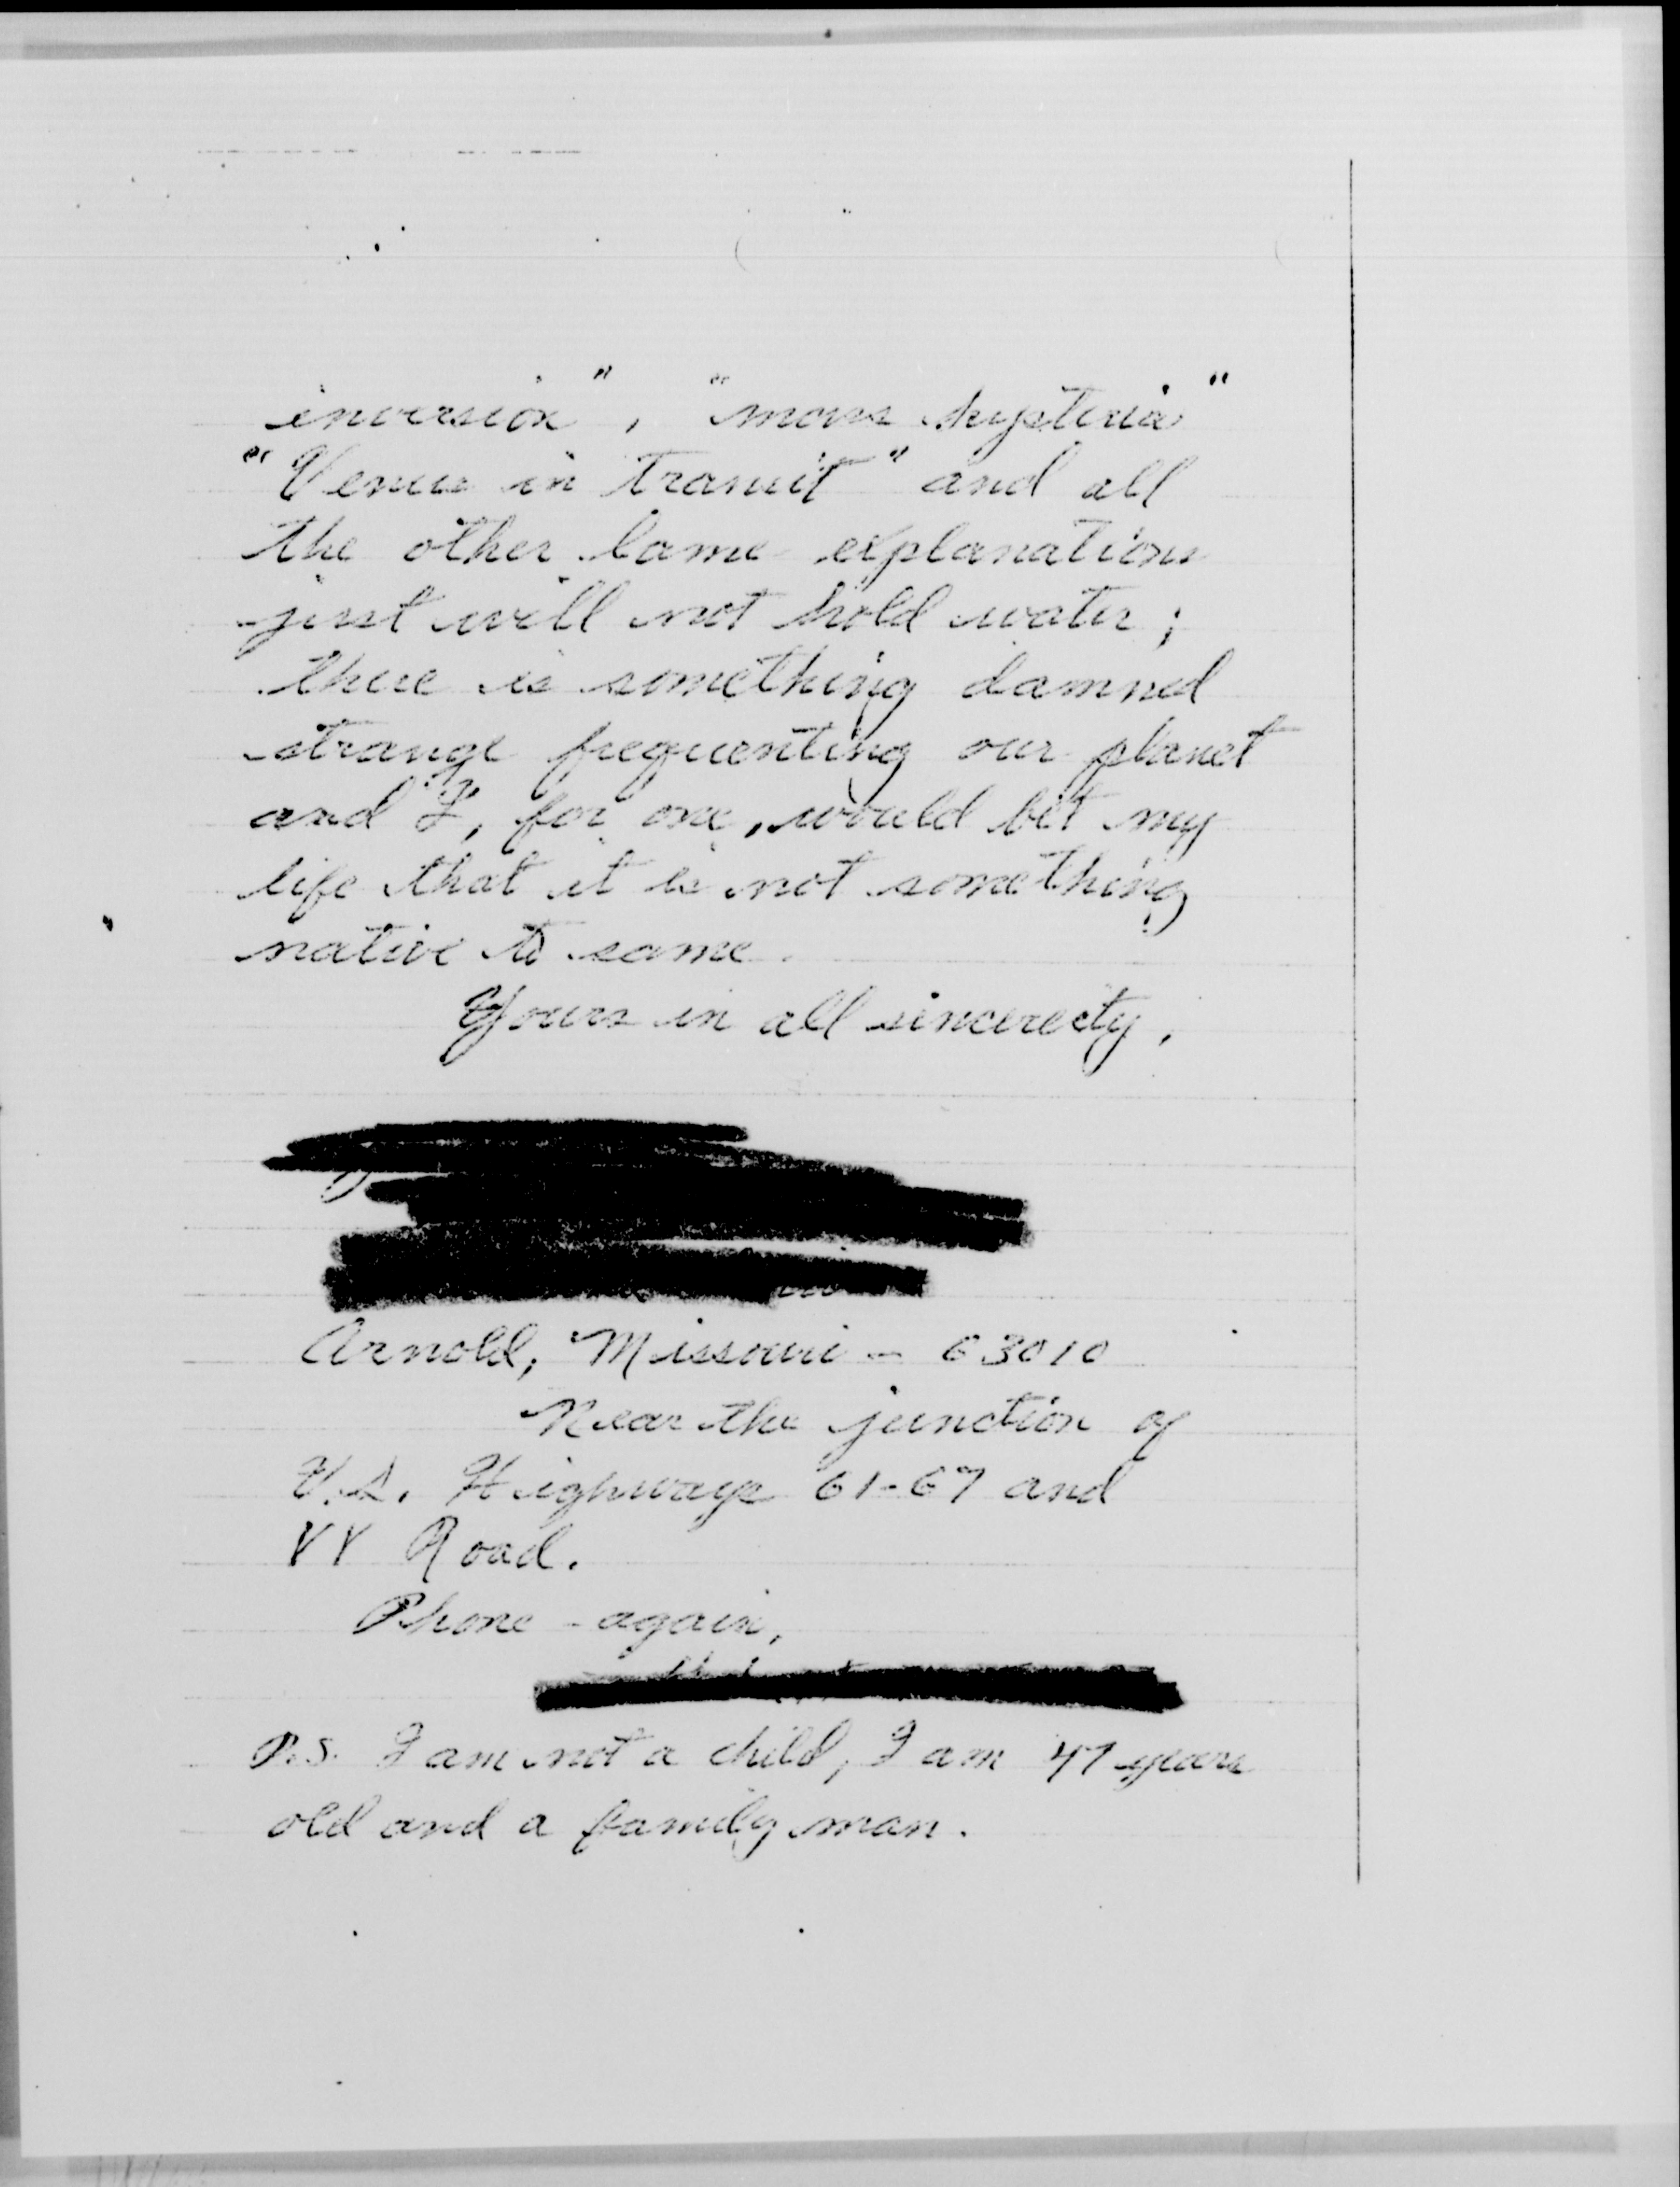 inversion", "mass hysteria"
"Venus in transit" and all
the other lame explanations
just will not hold water;
there is something damned
strange frequenting our planet
and I, for one, would bet my
life that it is not something
native to same.
Yours in all sincerety,
Arnold, Missouri - 63010
Near the junction of
U.S. Highways 61-67 and
Road.
Phone - again,
P.S. I am not a child, I am years
old and a family man.